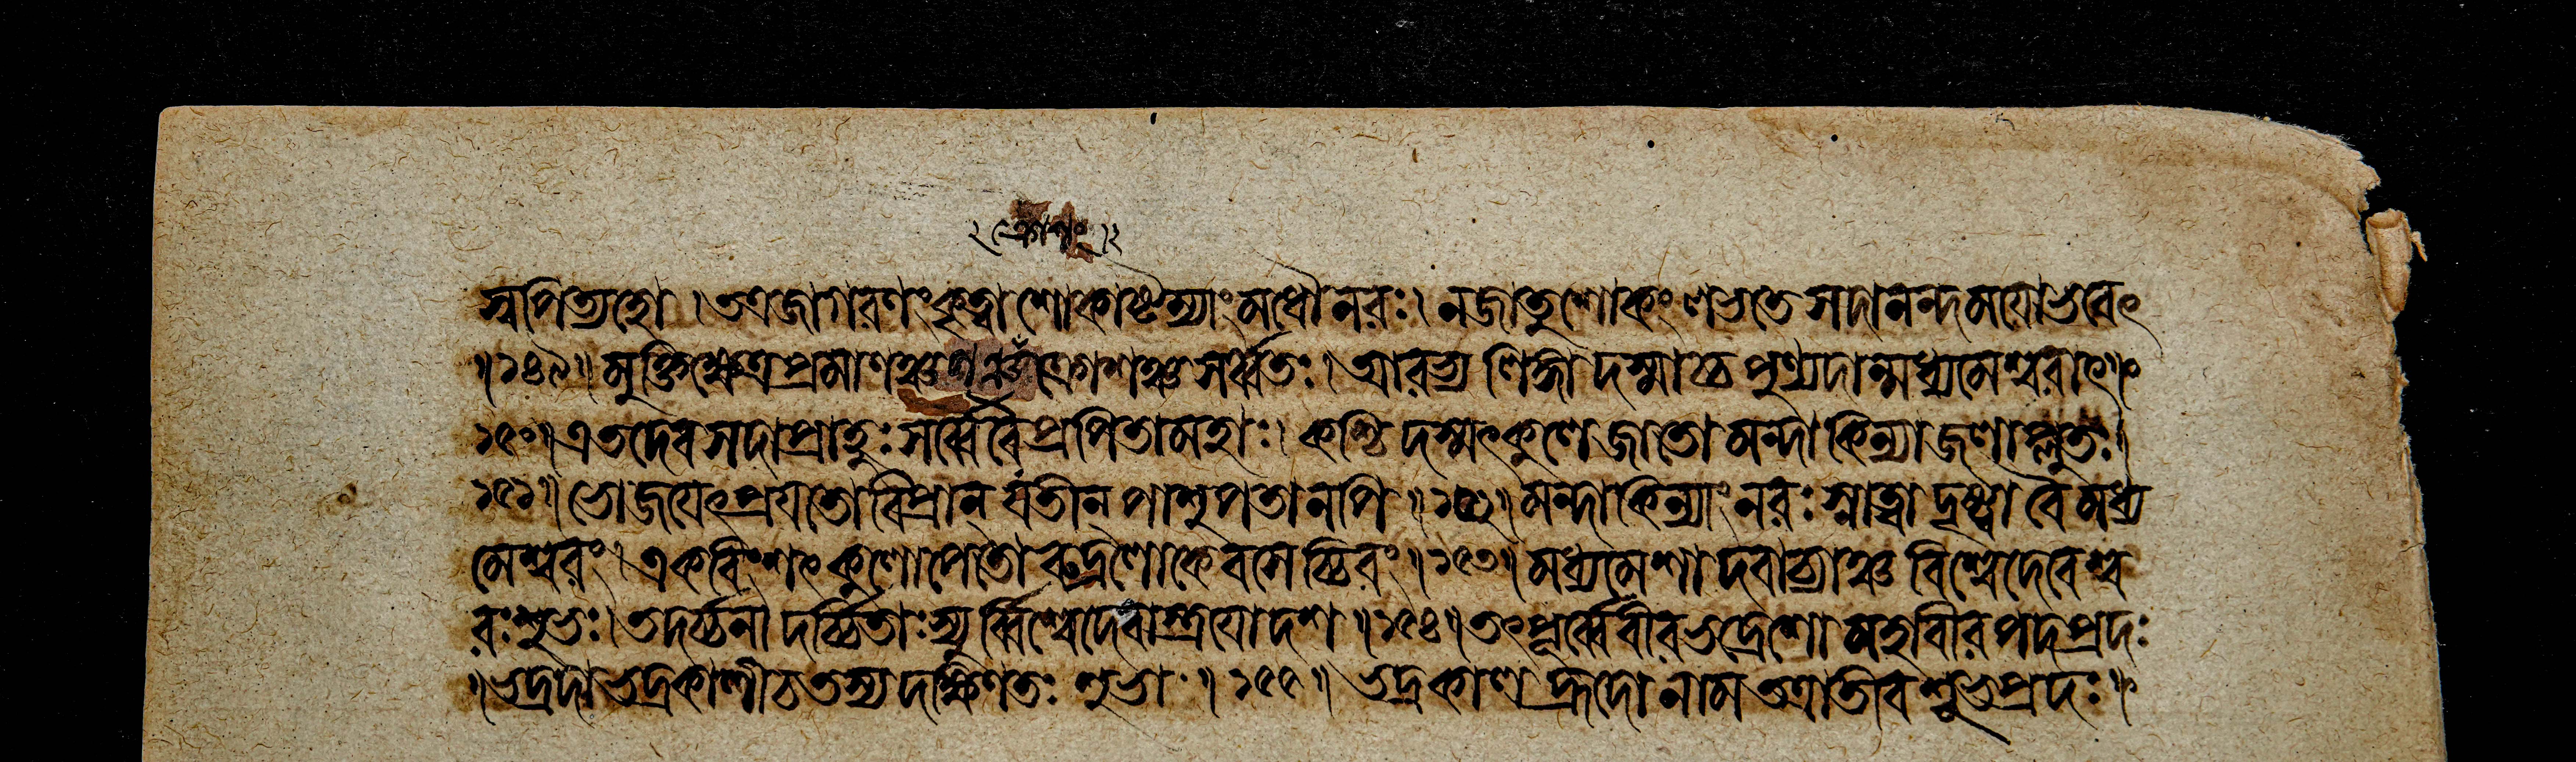 ক্রোশং
স্বপিত্যহো । তত্রজাগরণংকৃত্বাশোকাষ্টম্যাং মধৌ নরঃ। নজাতুশোকং লভতে সদানন্দময়োভবেৎ
॥১৪৯॥ মুক্তিক্ষেত্রপ্রমাণঞ্চ ক্রোশঞ্চ সর্ব্বতঃ। আরভ্য লিঙ্গাদস্মাচ্চ পুণ্যদান্মধ্যমেশ্বরাৎ॥
১৫০॥ এতদেবসদাপ্রাহুঃ সর্ব্বেবৈপ্রপিতামহাঃ। কশ্চিদস্মৎকুলে জাতো মন্দাকিন্যাজলাপ্লুতঃ।
১৫১॥ ভোজয়েৎপ্রযতোবিপ্রান্ যতীন্ পাশুপতানপি ॥১৫২॥ মন্দাকিন্যাং নরঃ স্নাত্বা দৃষ্ট্বা বৈমধ্য
মেশ্বরং। একবিংশৎকুলোপেতো রুদ্রলোকেবসেচ্চিরং॥১৫৩॥ মধ্যমেশাদবাচ্যাঞ্চ বিশ্বেদেবেশ্ব
রঃশুভঃ। তদর্চ্চনাদর্চ্চিতাঃস্যুর্ব্বিশ্বেদেবাস্ত্রয়োদশ ॥১৫৪॥ তৎপূর্ব্বেবীরভদ্রেশো মহাবীরপদপ্রদঃ
॥ভদ্রদাভদ্রকালীচ তস্যদক্ষিণতঃ শুভা ॥ ১৫৫॥ ভদ্রকালহ্রদোনাম তত্রাতিবশুভপ্রদঃ॥